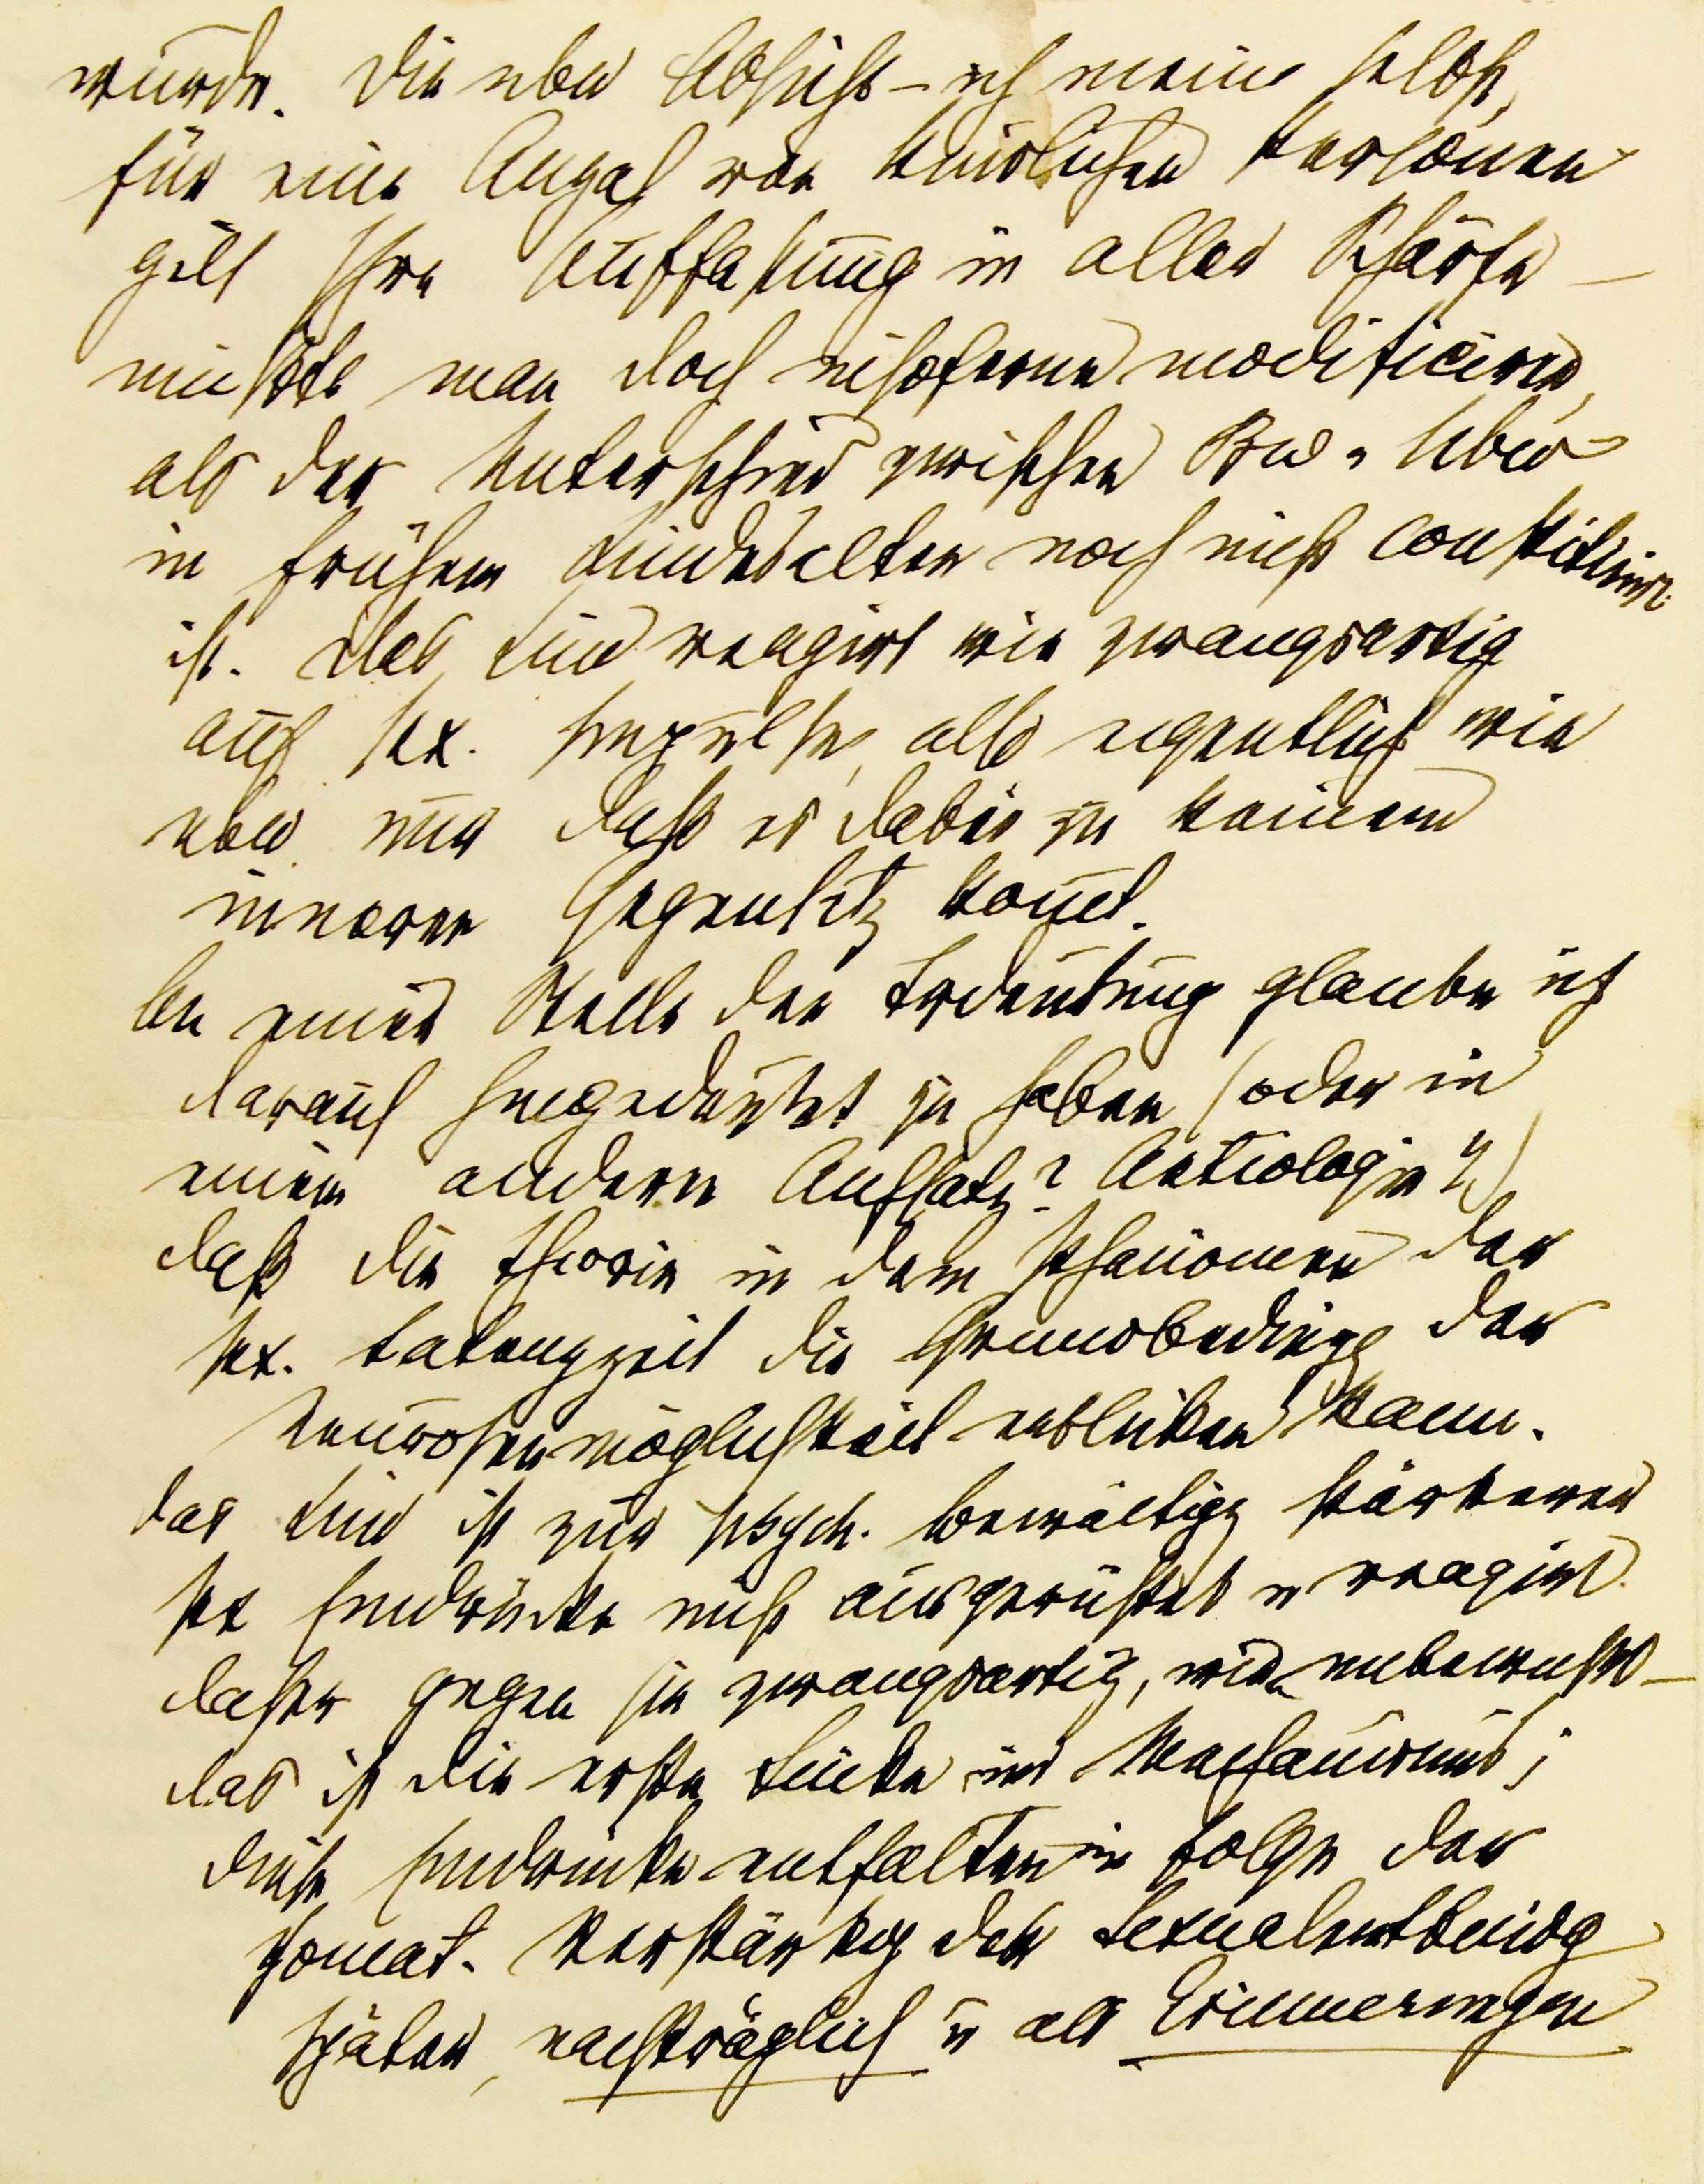 würde. Die ubw Absicht – ich meine selbst,
für eine Anzal von kindlichen Personen
gilt Ihre Auffassung in aller Schärfe –
müßte man doch insoferne modificiren,
als der Unterschied zwischen Bw u Ubw
in frühem Kindesalter noch nicht constituirt
ist. Das Kind reagirt wie zwangsartig
auf sex. Impulse, also eigentlich wie
ubw nur daß es dabei zu keinem
inneren Gegensatz kom̄t.
An einer Stelle der Trdeutung glaube ich
darauf hingedeutet zu haben (oder in
einem andern Aufsatz? Aetiologie?)
daß die Theorie in dem Phänomen der
sex. Latenzzeit die Grundbedingg der
Neurosenmöglichkeit erblicken kann.
Das Kind ist zur psych. Bewältigg stärkerer
sex Eindrücke nicht ausgerüstet u reagirt
daher gegen sie zwangsartig, wie unbewußt –
das ist die erste Lücke im Mechanismus;
diese Eindrücke entfalten in Folge der
somat. Verstärkg der Sexualentbindg
später, nachträglich u als Erinnerungen